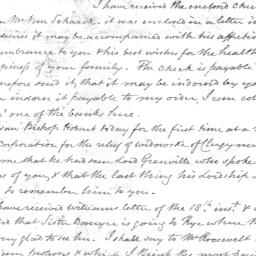 I have received the enclosed chec
Mr Wm Schaack. it was enclosed in a letter i
desires it may be accompanied with his affectio
embrance to you & his best wishes for the health
piness of your family. The check is payable
refore send it, that it may be indorsed by yo
indorse it payable to my order, I can col
one of the banks here.
saw Bishop Hobart today for the first time at a
Corporation for the relief of widows &c of Clergymen
me that he had seen Lord Grenville who spoke
of you, & that the last thing his Lordship s
to remember him to you.
have received Williams letter of the 18th inst. &
that Sister Banyer is going to Rye while
very glad to see him. I shall say to Mr Roosevelt
which I think the most